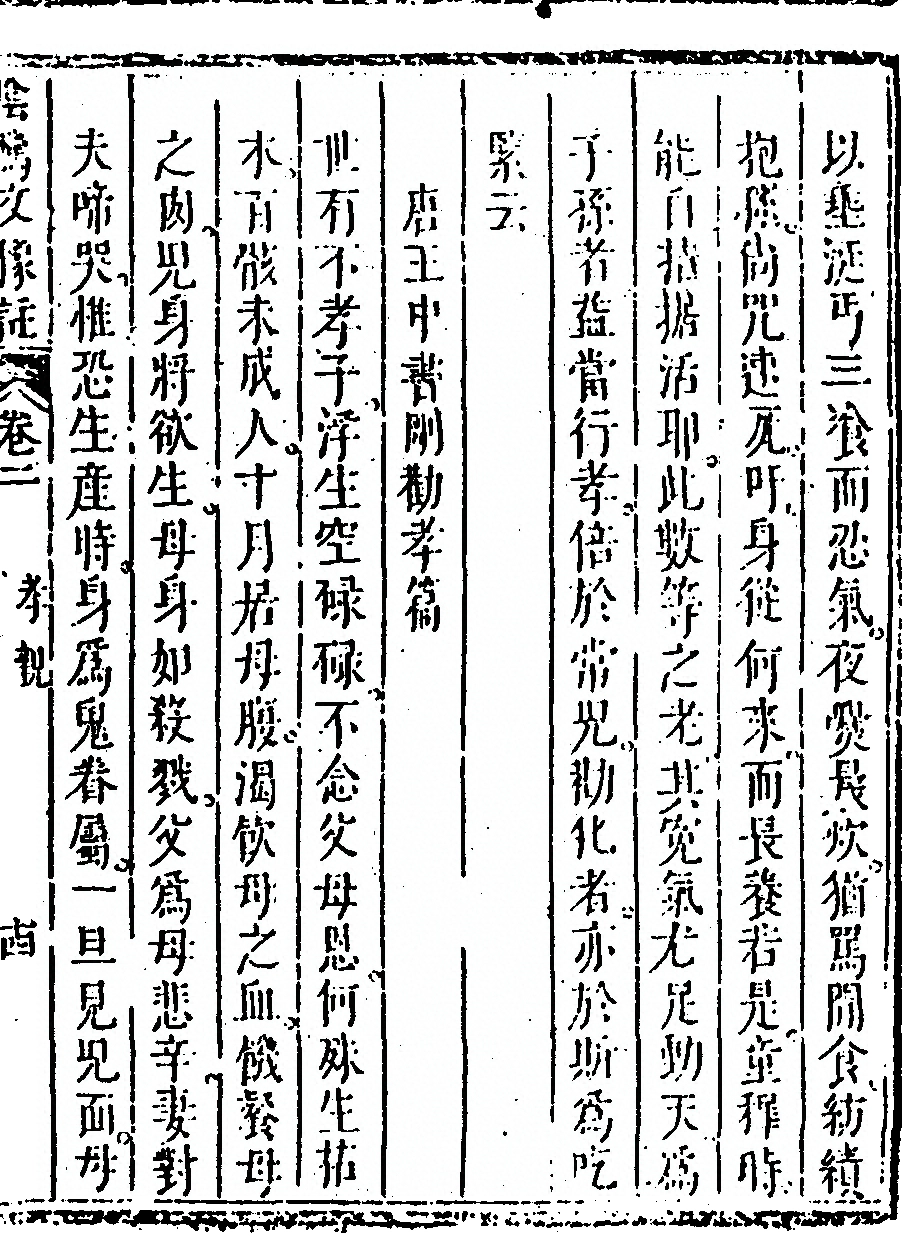 以垂涎丐三飡而忍氣夜㸑長炊猶罵閒食紡績
抱孫尚咒速死吁身從何來而長養若是童稚時
能自拮据活耶此數等之老其冤氣尤足動天為
子孫者益當行孝倍於常兒勸化者亦於斯為吃
緊云
唐王中書剛勸孝篇
世有不孝子浮生空碌碌不念父母恩何殊生枯
木百骸未成人十月居母腹渴飲母之血饑餐母
之肉兒身將欲生母身如殺戮父為母悲辛妻對
夫啼哭惟恐生產時身為鬼眷屬一旦見兒面母
陰騭文像註 卷二 孝親